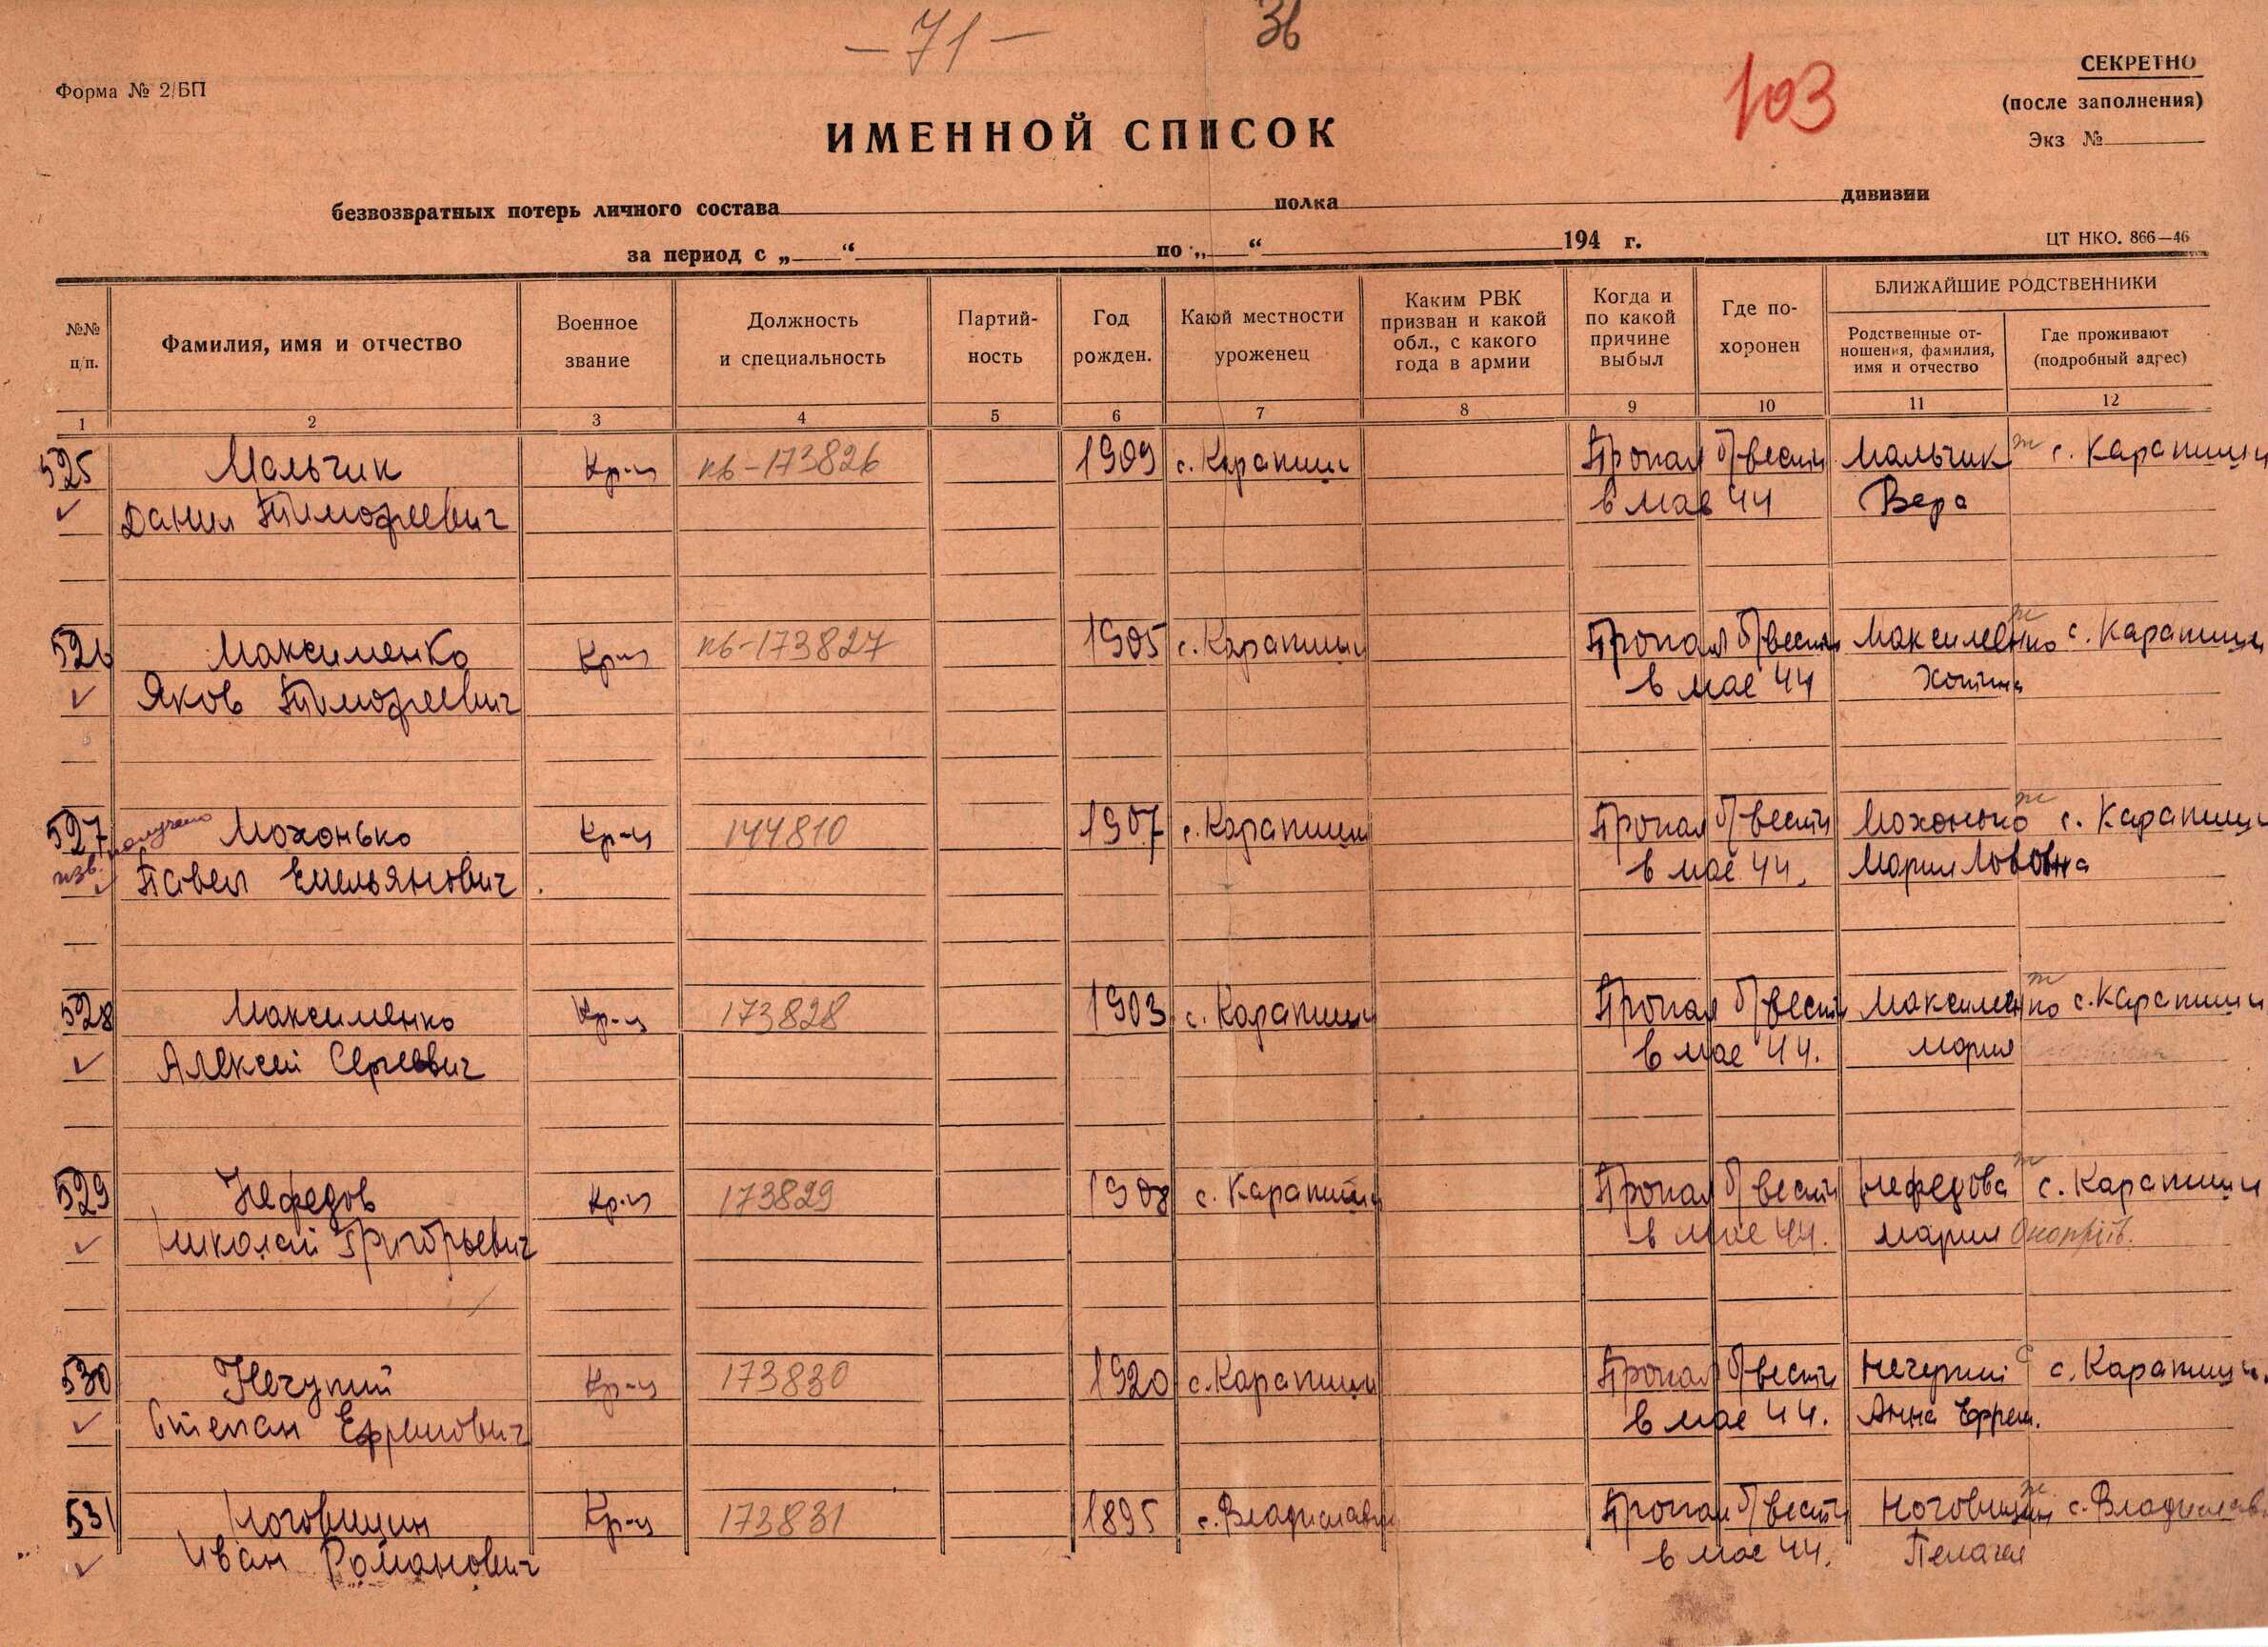 — 71 —
36
103
СЕКРЕТНО
(после заполнения)
Экз №
Форма № 2/БП
ИМЕННОЙ СПИСОК
безвозвратных потерь личного состава полка дивизии
за период с „ “ по „ “ 194 г.
ЦТ НКО. 866—46
№№ п/п.
Фамилия, имя и отчество
Военное звание
Должность и специальность
Партийность
Год рожден.
Какой местности уроженец
Каким РВК призван и какой обл., с какого года в армии
Когда и по какой причине выбыл
Где похоронен
БЛИЖАЙШИЕ РОДСТВЕННИКИ
Родственные отношения, фамилия, имя и отчество
Где проживают (подробный адрес)
1 2 3 4 5 6 7 8 9 10 11 12
525 Мальчик Кр-ц пб-173826 1909 с. Карапиши Пропал б/вести Мальчик ж с. Карапиши
Данил Тимофеевич в мае 44 Вера
526 Максименко Кр-ц пб-173827 1905 с. Карапиши Пропал б/вести Максименко ж с. Карапиши
Яков Тимофеевич в мае 44
527 получено Мохонько Кр-ц 144810 1907 с. Карапиши Пропал б/вести Мохонько ж с. Карапиши
изв. Павел Емельянович в мае 44. Мария
528 Максименко Кр-ц 173828 1903 с. Карапиши Пропал б/вести Максименко ж с. Карапиши
Алексей Сергеевич в мае 44. Мария
529 Нефедов Кр-ц 173829 1908 с. Карапиши Пропал б/вести Нефедова ж с. Карапиши
Николай Григорьевич в мае 44. Мария
530 Нечупий Кр-ц 173830 1920 с. Карапиши Пропал б/вести с. Карапиши
Степан Ефремович в мае 44. Анна Ефрем.
531 Ноговицин Кр-ц 173831 1895 Пропал б/вести Ноговицин ж
Иван Романович в мае 44. Пелагея